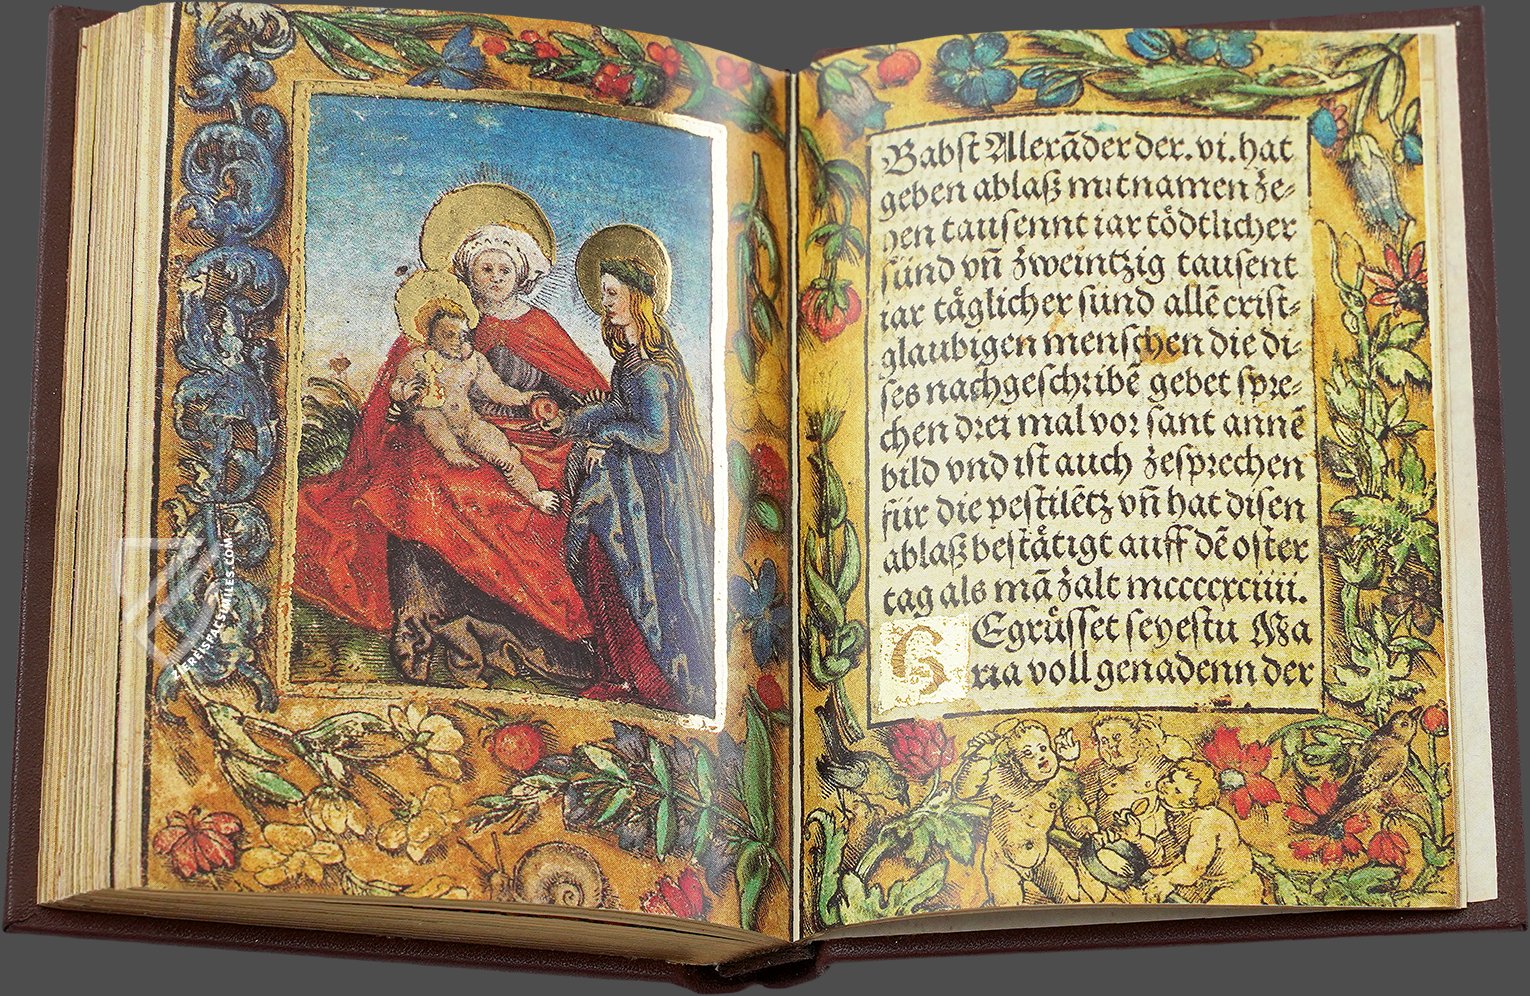 ZIEREISFACSIMILES.COM
Babst Alexãder der .vi. hat
geben ablasz mit namen ze⸗
hen tausennt iar tödtlicher
sünd vñ zweintzig tausent
iar täglicher sünd allẽ crist⸗
glaubigen menschen die di⸗
ses nachgeschribẽ gebet spre⸗
chen drei mal vor sant annẽ
bild vnd ist auch zesprechen
für die pestilẽtz vñ hat disen
ablasz bestätigt auff dẽ oster
tag als mã zalt mccccxciiii.
GEgrüsset seyestu Ma
ria voll genadenn der